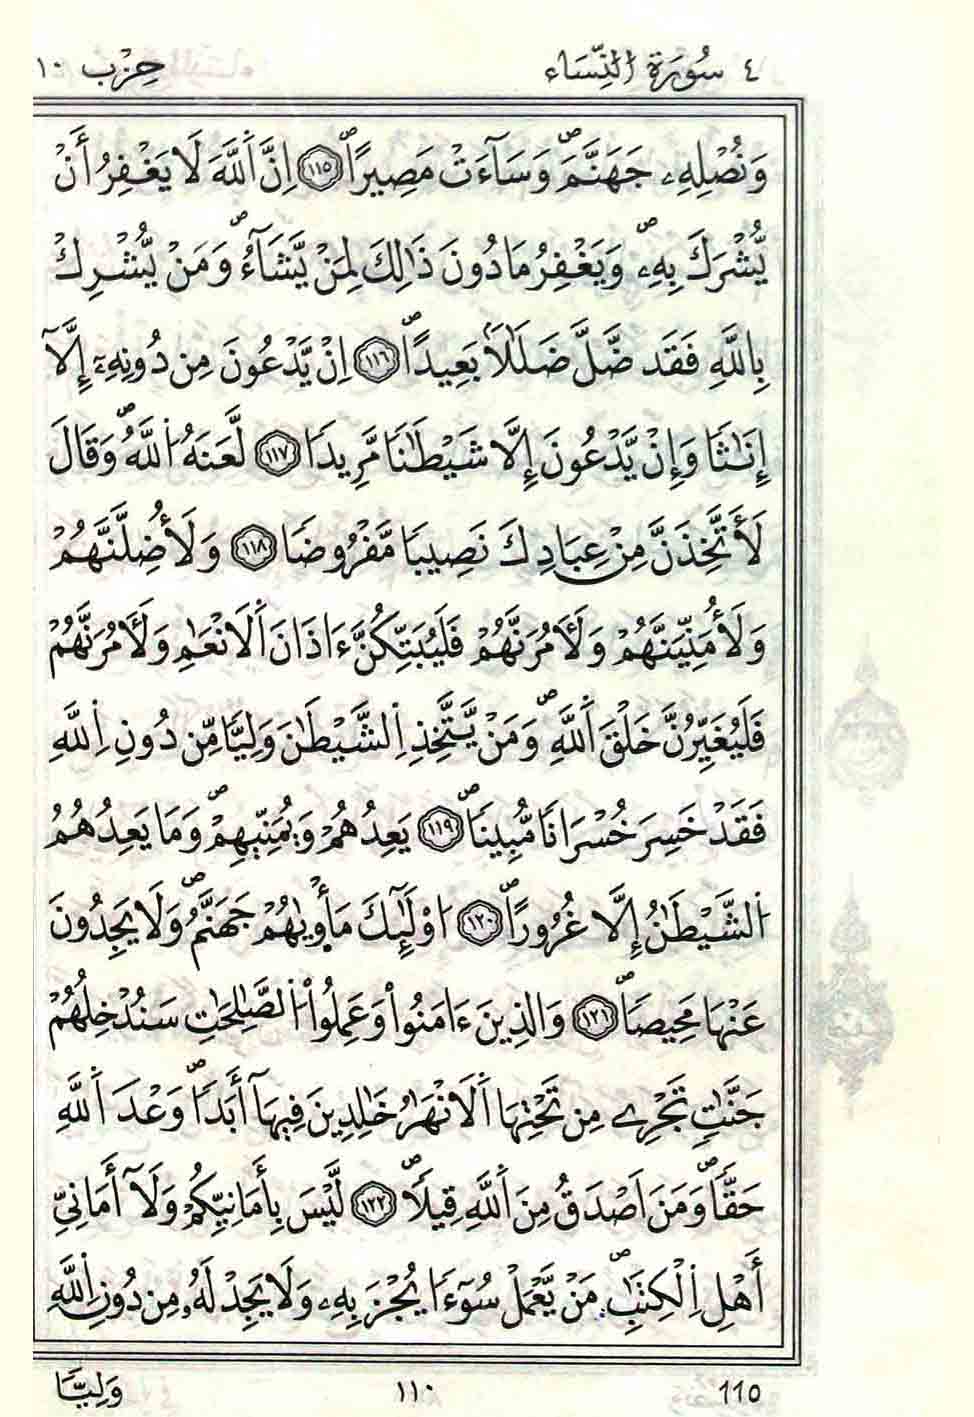 ٤ سُورَةُ اُ۬لنِّسَاء حِزْب ١٠
وَنُصْلِهِۦ جَهَنَّمَۖ وَسَآءَتْ مَصِيراًۖ ١١٥ اِنَّ اَ۬للَّهَ لَا يَغْفِرُ أَنْ
يُّشْرَكَ بِهِۦۖ وَيَغْفِرُ مَا دُونَ ذَٰلِكَ لِمَنْ يَّشَآءُۖ وَمَنْ يُّشْرِكْ
بِاللَّهِ فَقَد ضَّلَّ ضَلَٰلاَۢ بَعِيداًۖ ١١٦ اِنْ يَّدْعُونَ مِن دُونِهِۦٓ إِلَّآ
إِنَٰثاٗ وَإِنْ يَّدْعُونَ إِلَّا شَيْطَٰناٗ مَّرِيداٗ ١١٧ لَّعَنَهُ اُ۬للَّهُۖ وَقَالَ
لَأَتَّخِذَنَّ مِنْ عِبَادِكَ نَصِيباٗ مَّفْرُوضاٗ ١١٨ وَلَأُضِلَّنَّهُمْ
وَلَأُمَنِّيَنَّهُمْ وَلَأٓمُرَنَّهُمْ فَلَيُبَتِّكُنَّ ءَاذَانَ اَ۬لَانْعَٰمِ وَلَأٓمُرَنَّهُمْ
فَلَيُغَيِّرُنَّ خَلْقَ اَ۬للَّهِۖ وَمَنْ يَّتَّخِذِ اِ۬لشَّيْطَٰنَ وَلِيّاٗ مِّن دُونِ اِ۬للَّهِ
فَقَدْ خَسِرَ خُسْرَاناٗ مُّبِيناٗۖ ١١٩ يَعِدُهُمْ وَيُمَنِّيهِمْۖ وَمَا يَعِدُهُمُ
اُ۬لشَّيْطَٰنُ إِلَّا غُرُوراًۖ ١٢٠ ا۟وْلَٰٓئِكَ مَأْو۪يٰهُمْ جَهَنَّمُۖ وَلَا يَجِدُونَ
عَنْهَا مَحِيصاٗۖ ١٢١ وَالذِينَ ءَامَنُوا۟ وَعَمِلُوا۟ اُ۬لصَّٰلِحَٰتِ سَنُدْخِلُهُمْ
جَنَّٰتٖ تَجْرِے مِن تَحْتِهَا اَ۬لَانْهَٰرُ خَٰلِدِينَ فِيهَآ أَبَداٗۖ وَعْدَ اَ۬للَّهِ
حَقّاٗۖ وَمَنَ اَصْدَقُ مِنَ اَ۬للَّهِ قِيلاًۖ ١٢٢ لَّيْسَ بِأَمَانِيِّكُمْ وَلَآ أَمَانِيِّ
أَهْلِ اِ۬لْكِتَٰبِۖ مَنْ يَّعْمَلْ سُوٓءاٗ يُجْزَ بِهِۦ وَلَا يَجِدْ لَهُۥ مِن دُونِ اِ۬للَّهِ
115 ١١٠ وَلِيّاٗ